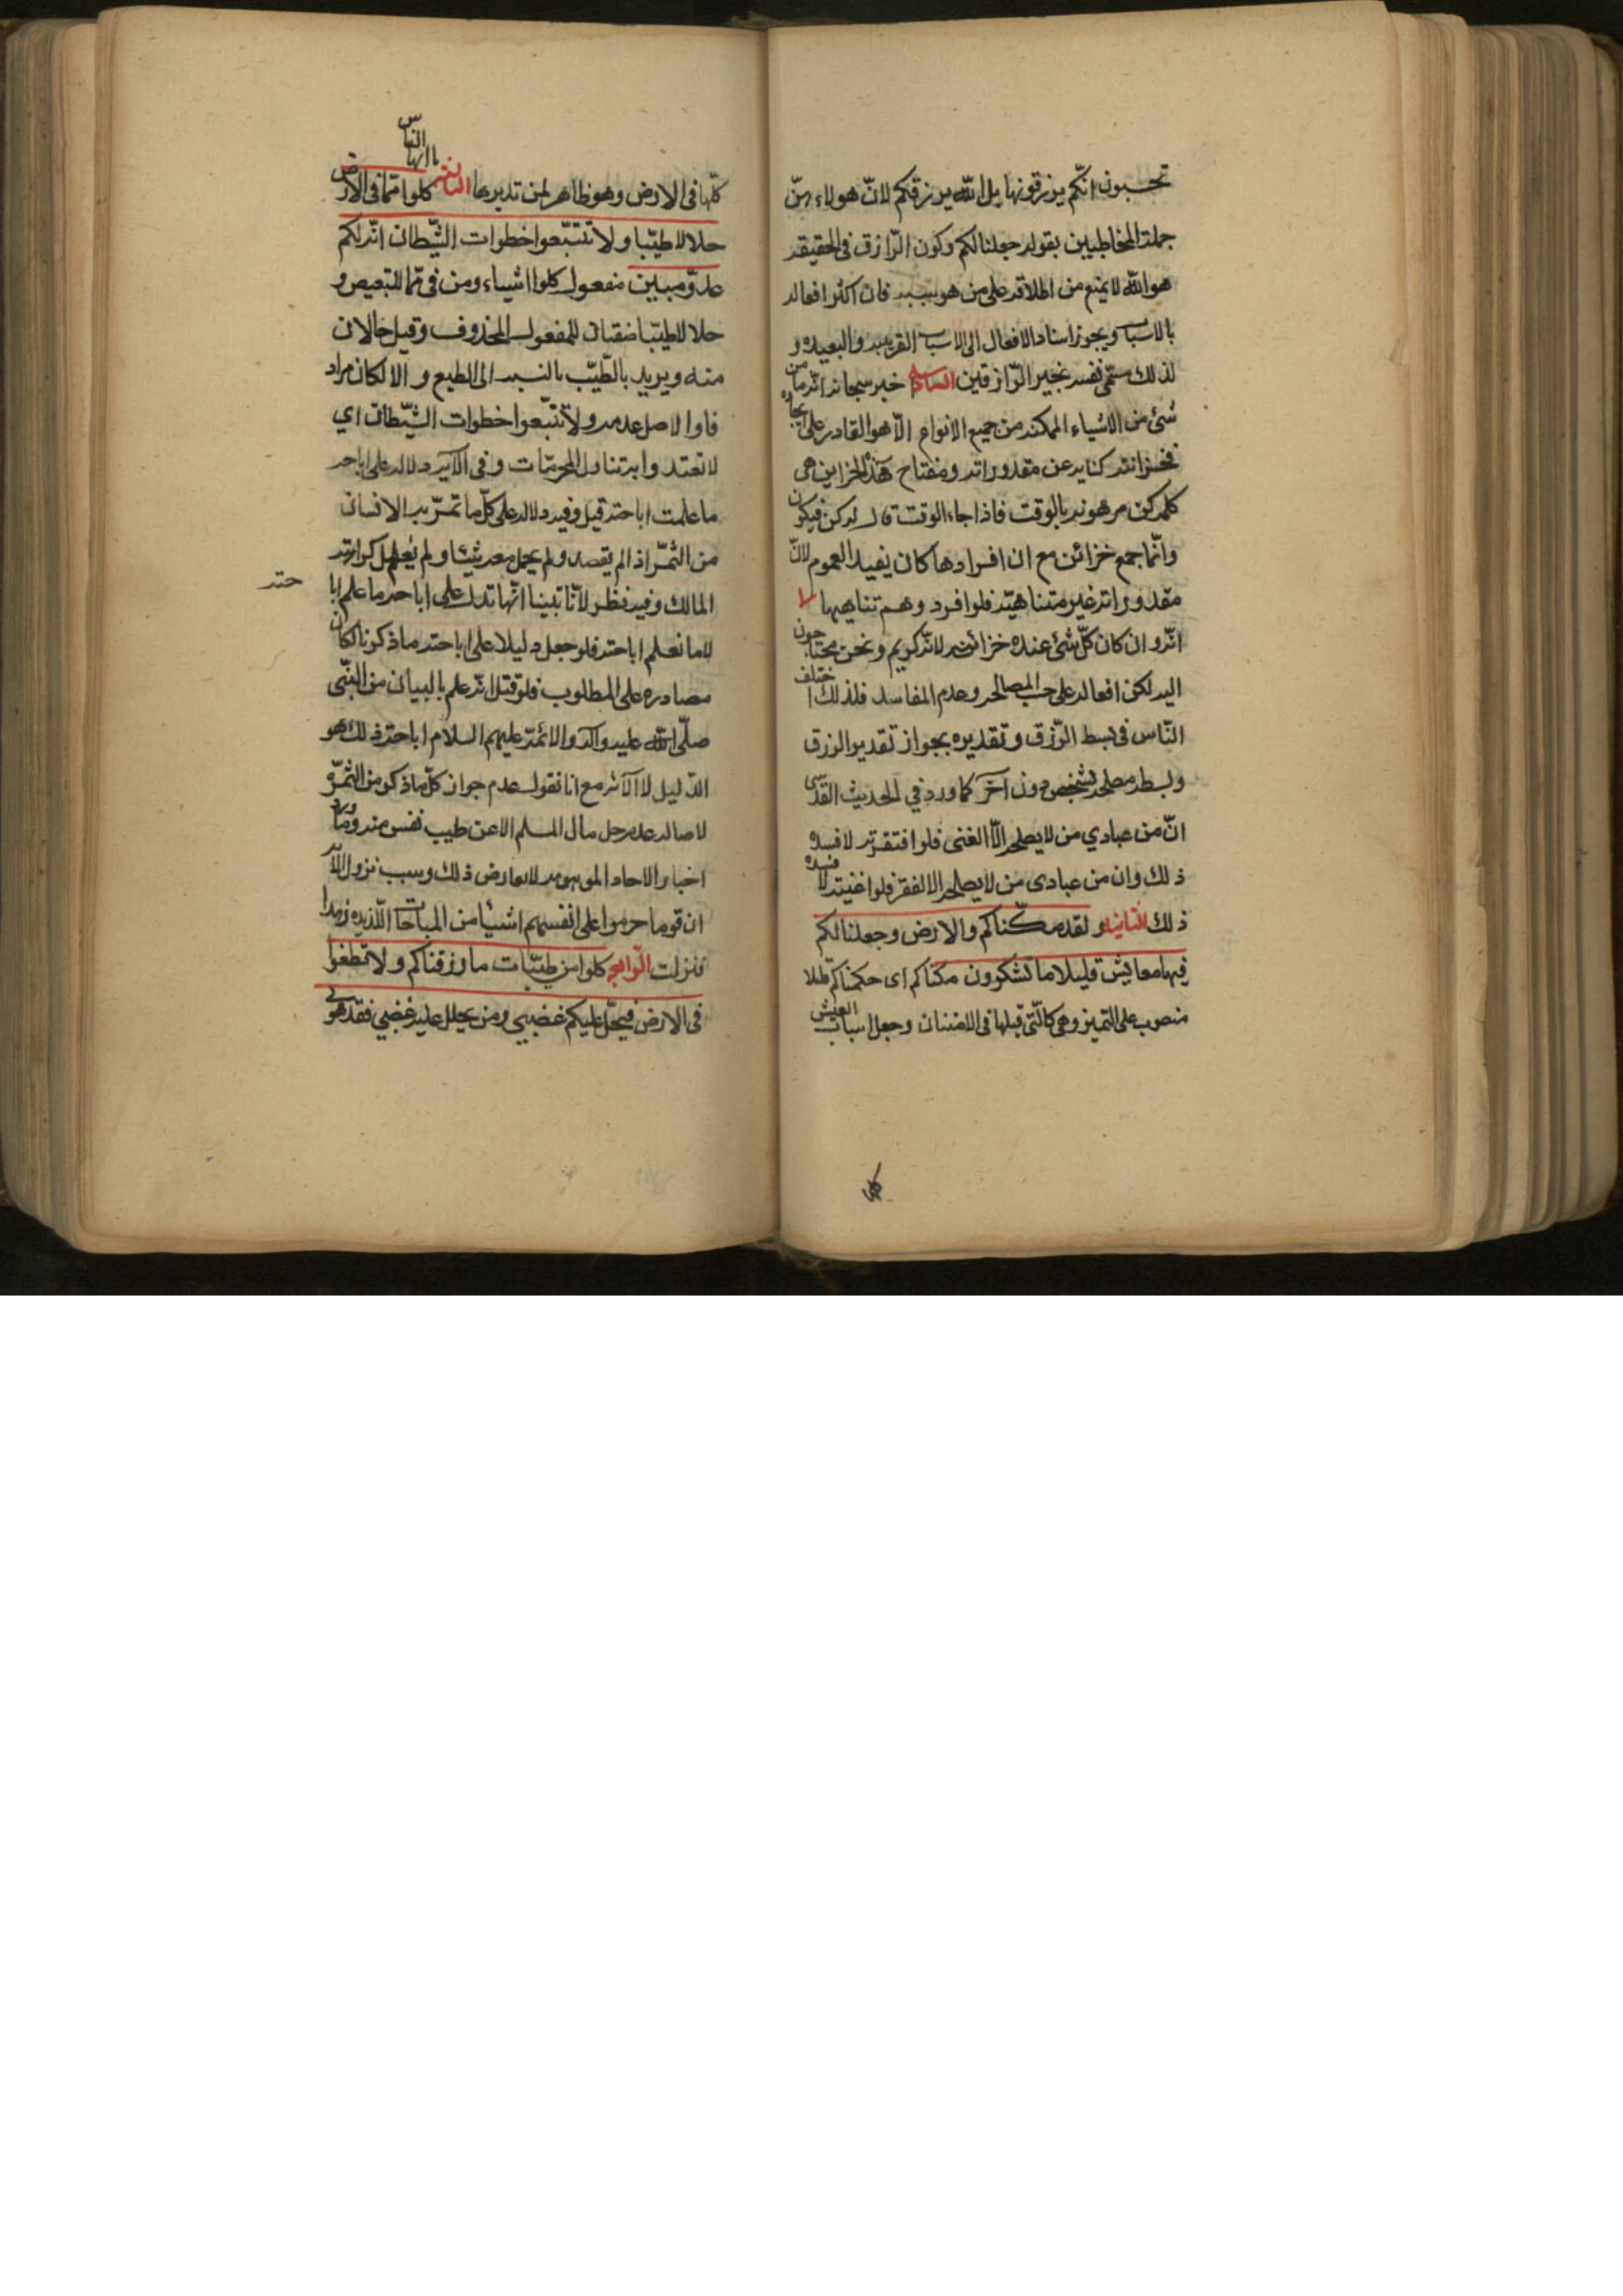 تحسبون انكّم يرزقونها بل الله يرزقكم لانّ هولاء من
جملة المخاطبين بقوله جعلنا لكم وكون الرّازق فى الحقيقه
هو الله لا يمنع من اطلاقه على من هو سببه فان اكثر افعاله
بالاسباب ويجوز اسناد الافعال الى الاسباب القريبه والبعيده و
لذلك سمّى نفسه بخير الرّازقين السادسه خبر سبحانه انّه ما من
شئ من الاشياء الممكنه من جميع الانواع الاّ هو القادر على ايجاده
فخزائنه كنايه عن مقدوراته ومفتاح هذه الخزاين هى
كلمه كن مرهونه بالوقت فاذا جاء الوقت قال له كن فيكون
وانّما جمع خزائن مع ان افرادها كان يفيد العموم لانّ
مقدوراته غير متناهيّة فلو افرد وهم تناهيها
انّه وان كان كلّ شئ عنده خزائنه لانّه كريم ونحن محتاجون
اليه لكن افعاله على حسب المصالح وعدم المفاسد فلذلك اختلف
النّاس فى بسط الرّزق وتقديره بجواز تقدير الرزق
وبسطه مصلحه لشخص دون آخر كما ورد في الحديث القدسى
انّ من عبادي من لا يصلحه الّا الغنى فلو افتقرته لافسده
ذلك وان من عبادى من لا يصلحه الا الفقر فلو اغنيته لافسده
ذلك الثانيه ولقد مكّناكم والارض وجعلنا لكم
فيها معايش قليلا ما تشكرون مكناكم اى حكمناكم قليلا
منصوب على التميز وهى كالّتى قبلها فى الامتنان وجعل اسباب العيش
كلها
كلّها فى الارض وهو ظاهر لمن تدبرها الثالثه يا ايها الناس كلوا ممّا فى الارض
حلالا طيّبا ولا تتبّعوا خطوات الشّيطان انّه لكم
عدوّ مبين مفعول كلوا اشياء ومن فى ممّا للتبعيض و
حلالا طيّبا صفتان للمفعول المحذوف وقيل حالان
منه ويريد بالطّيّب بالنسبه الى الطبع والا لكان مراد
فا والاصل عدمه ولا تتّبعوا خطوات الشّيطان اي
لا تعتدوا بتناول المحرمّات وفى الآيه دلاله على اباحه
ما علمت اباحته قيل وفيه دلاله على كلّ ما تمرّ به الانسان
من الثمّر اذا لم يقصد ولم يحمل معه شيئا ولم يُعلم كراهة
المالك وفيه نظر لانّا تبينا انّها تدل على اباحه ما علم ابا
حته
لا ما نعلم اباحته فلو جعل دليلا على اباحته ما ذكرنا لكان
مصادره على المطلوب فلو قيل انّه علم بالبيان من النّبى
صلّى الله عليه وآله والائمّه عليهم السلام اباحته ذلك هو
الدّليل لا الآيه مع انا نقول عدم جواز كلّ ما ذكر من الثمّره
لاصاله عدم حل مال المسلم الا عن طيب نفس منه وما ورد
اخبار الاحاد الموهومه لا يعارض ذلك وسبب نزول الآيه
ان قوما حرموا على انفسهم اشيئا من المباحات اللّذيذه زهدا
فنزلت الرّابعه كلوا من طيّبات ما رزقناكم ولا تطغوا
فى الارض فيحلّ عليكم غضبى ومن يحلل عليه غضبي فقد هوى